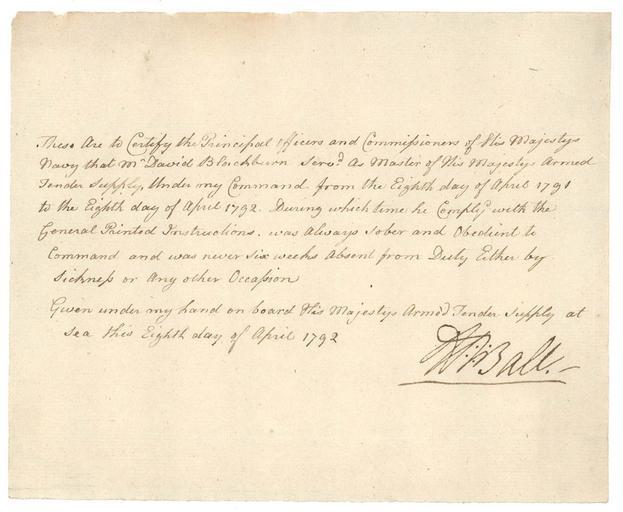 These Are to Certify the Principal Officers and Commissioners of His Majestys
Navy that Mr David Blackburn Servd As Master of His Majestys Armed
Tender Supply, Under my Command from the Eighth day of April 1791
to the Eighth day of April 1792. During which time he Complyd with the
General Printed Instructions. was Always Sober and Obedient to
Command and was never Six weeks Absent from Duty Either by
Sickness or Any other Occassion
Given under my hand on board His Majestys Armed Tender Supply at
Sea this Eighth day of April 1792
Ball.